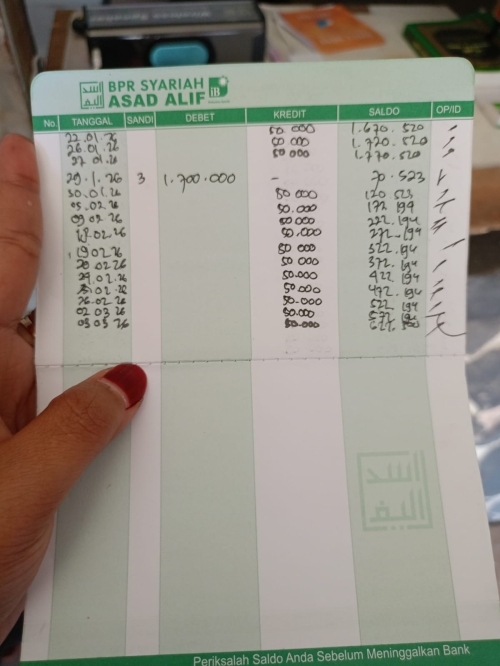 BPR SYARIAH
ASAD ALIF
iB
أسد
أليف
No. TANGGAL SANDI DEBET KREDIT SALDO OP/ID
22.01.26 50.000 1.670.520
26.01.26 50.000 1.720.520
27.01.26 50.000 1.770.520
29.1.26 3 1.700.000 - 70.523
30.01.26 50.000 120.523
05.02.26 50.000 172.194
09.02.26 50.000 222.194
18.02.26 50.000 272.194
19.02.26 50.000 322.194
20.02.26 50.000 372.194
24.02.26 50.000 422.194
50.000 472.194
26.02.26 50.000 522.194
02.03.26 50.000 572.194
03.03.26 50.000
اسد
اليف
Periksalah Saldo Anda Sebelum Meninggalkan Bank